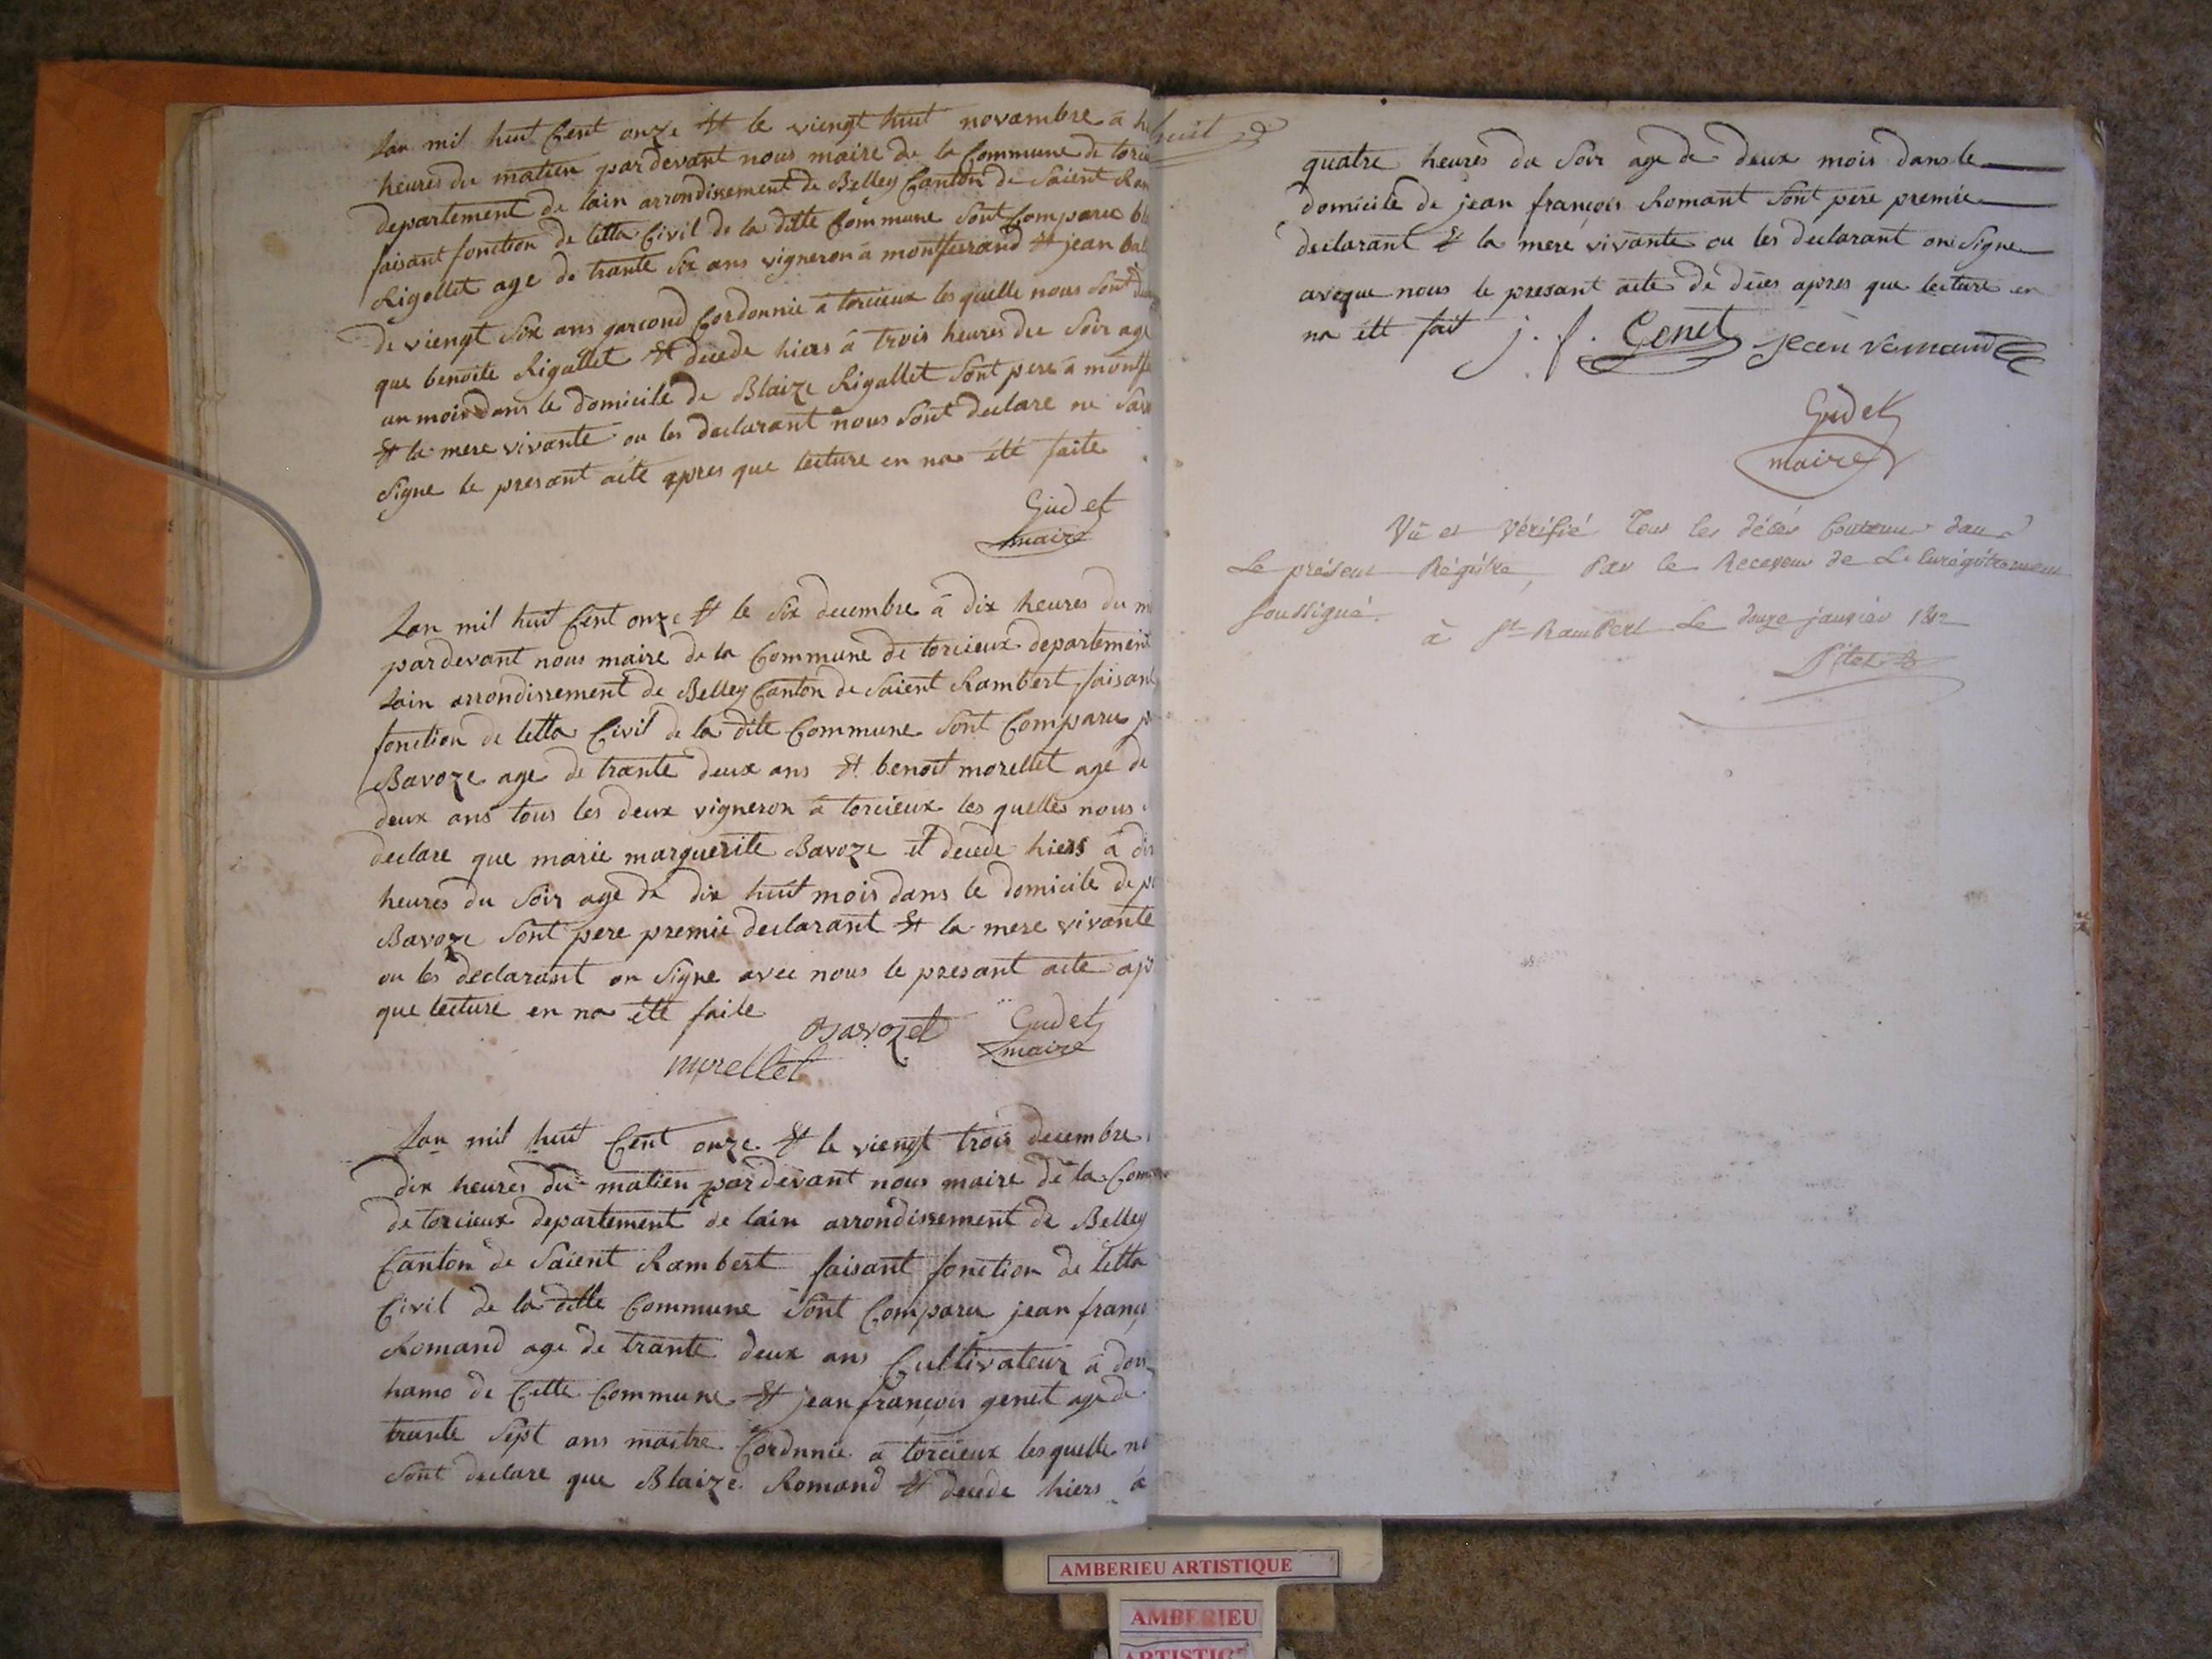 Lan mil huit Cent onze & le viengt huit novambre à
heures du matien pardevant nous maire de la Commune de
departement de lain arrondissement de Belley Canton de Saient
faisant fonction de letta Civil de la ditte Commune Sont Comparu
Rigollet age de trante Six ans vigneron à montferrand & jean
de viengt Six ans garcond Cordonnie à torcieux les quelle nous Sont
que benoite Rigallet & decede hiers à trois heures du Soir age
un mois dans le domicile de Blaize Rigallet Sont pere à
& la mere vivante ou les declarant nous Sont declare ne
Signe le presant acte apres que lecture en na été faite
Gudet
maire
Lan mil huit Cent onze & le Six decembre à dix heures du
pardevant nous maire de la Commune de torcieux departement
lain arrondissement de Belley Canton de Saient Rambert faisant
fonction de letta Civil de la dite Commune Sont Comparu
Bavoze age de trante deux ans & benoit morellet age de
deux ans tous les deux vigneron à torcieux les quelles nous
declare que marie marguerite Bavoze et decede hiers à
heures du Soir age de dix huit mois dans le domicile de
Bavoze Sont pere premie declarant & la mere vivante
ou les declarant on Signe avec nous le presant acte
que lecture en na été faite
Bavozet Gudet
maire
morellet
Lan mil huit Cent onze & le viengt trois decembre
dix heures du matien pardevant nous maire de la
de torcieux departement de lain arrondissement de Belley
Canton de Saient Rambert faisant fonction de letta
Civil de la ditte Commune Sont Comparu jean
Romand age de trante deux ans Cultivateur à
hamo de Cette Commune & jean françois genet age de
trante Sept ans maitre Cordnnie à torcieux lesquelle
Sont declare que Blaize Romand & decede hiers à
huit
quatre heures du Soir age de deux mois dans le
domicile de jean françois Romant Sont pere premie
declarant & la mere vivante ou les declarant on Signe
aveque nous le presant acte de deces apres que lecture en
na été fait j. f. Genet jean romand
Gudet
maire
Vû et Vérifié Tous les décés Contenu dans
Le présent Régitre, Par le Receveur de L'enrégitrement
soussigné.
à St Rambert Le douze janvier 1812
AMBERIEU ARTISTIQUE
AMBERIEU